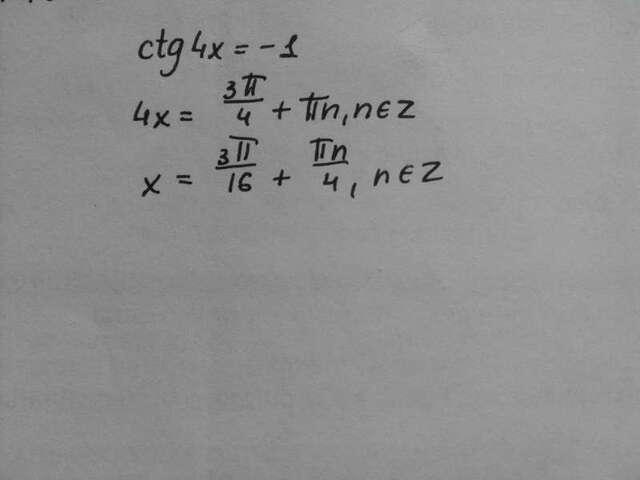 ctg 4x = -1
4x = 3π/4 + πn, n∈Z
x = 3π/16 + πn/4, n∈Z